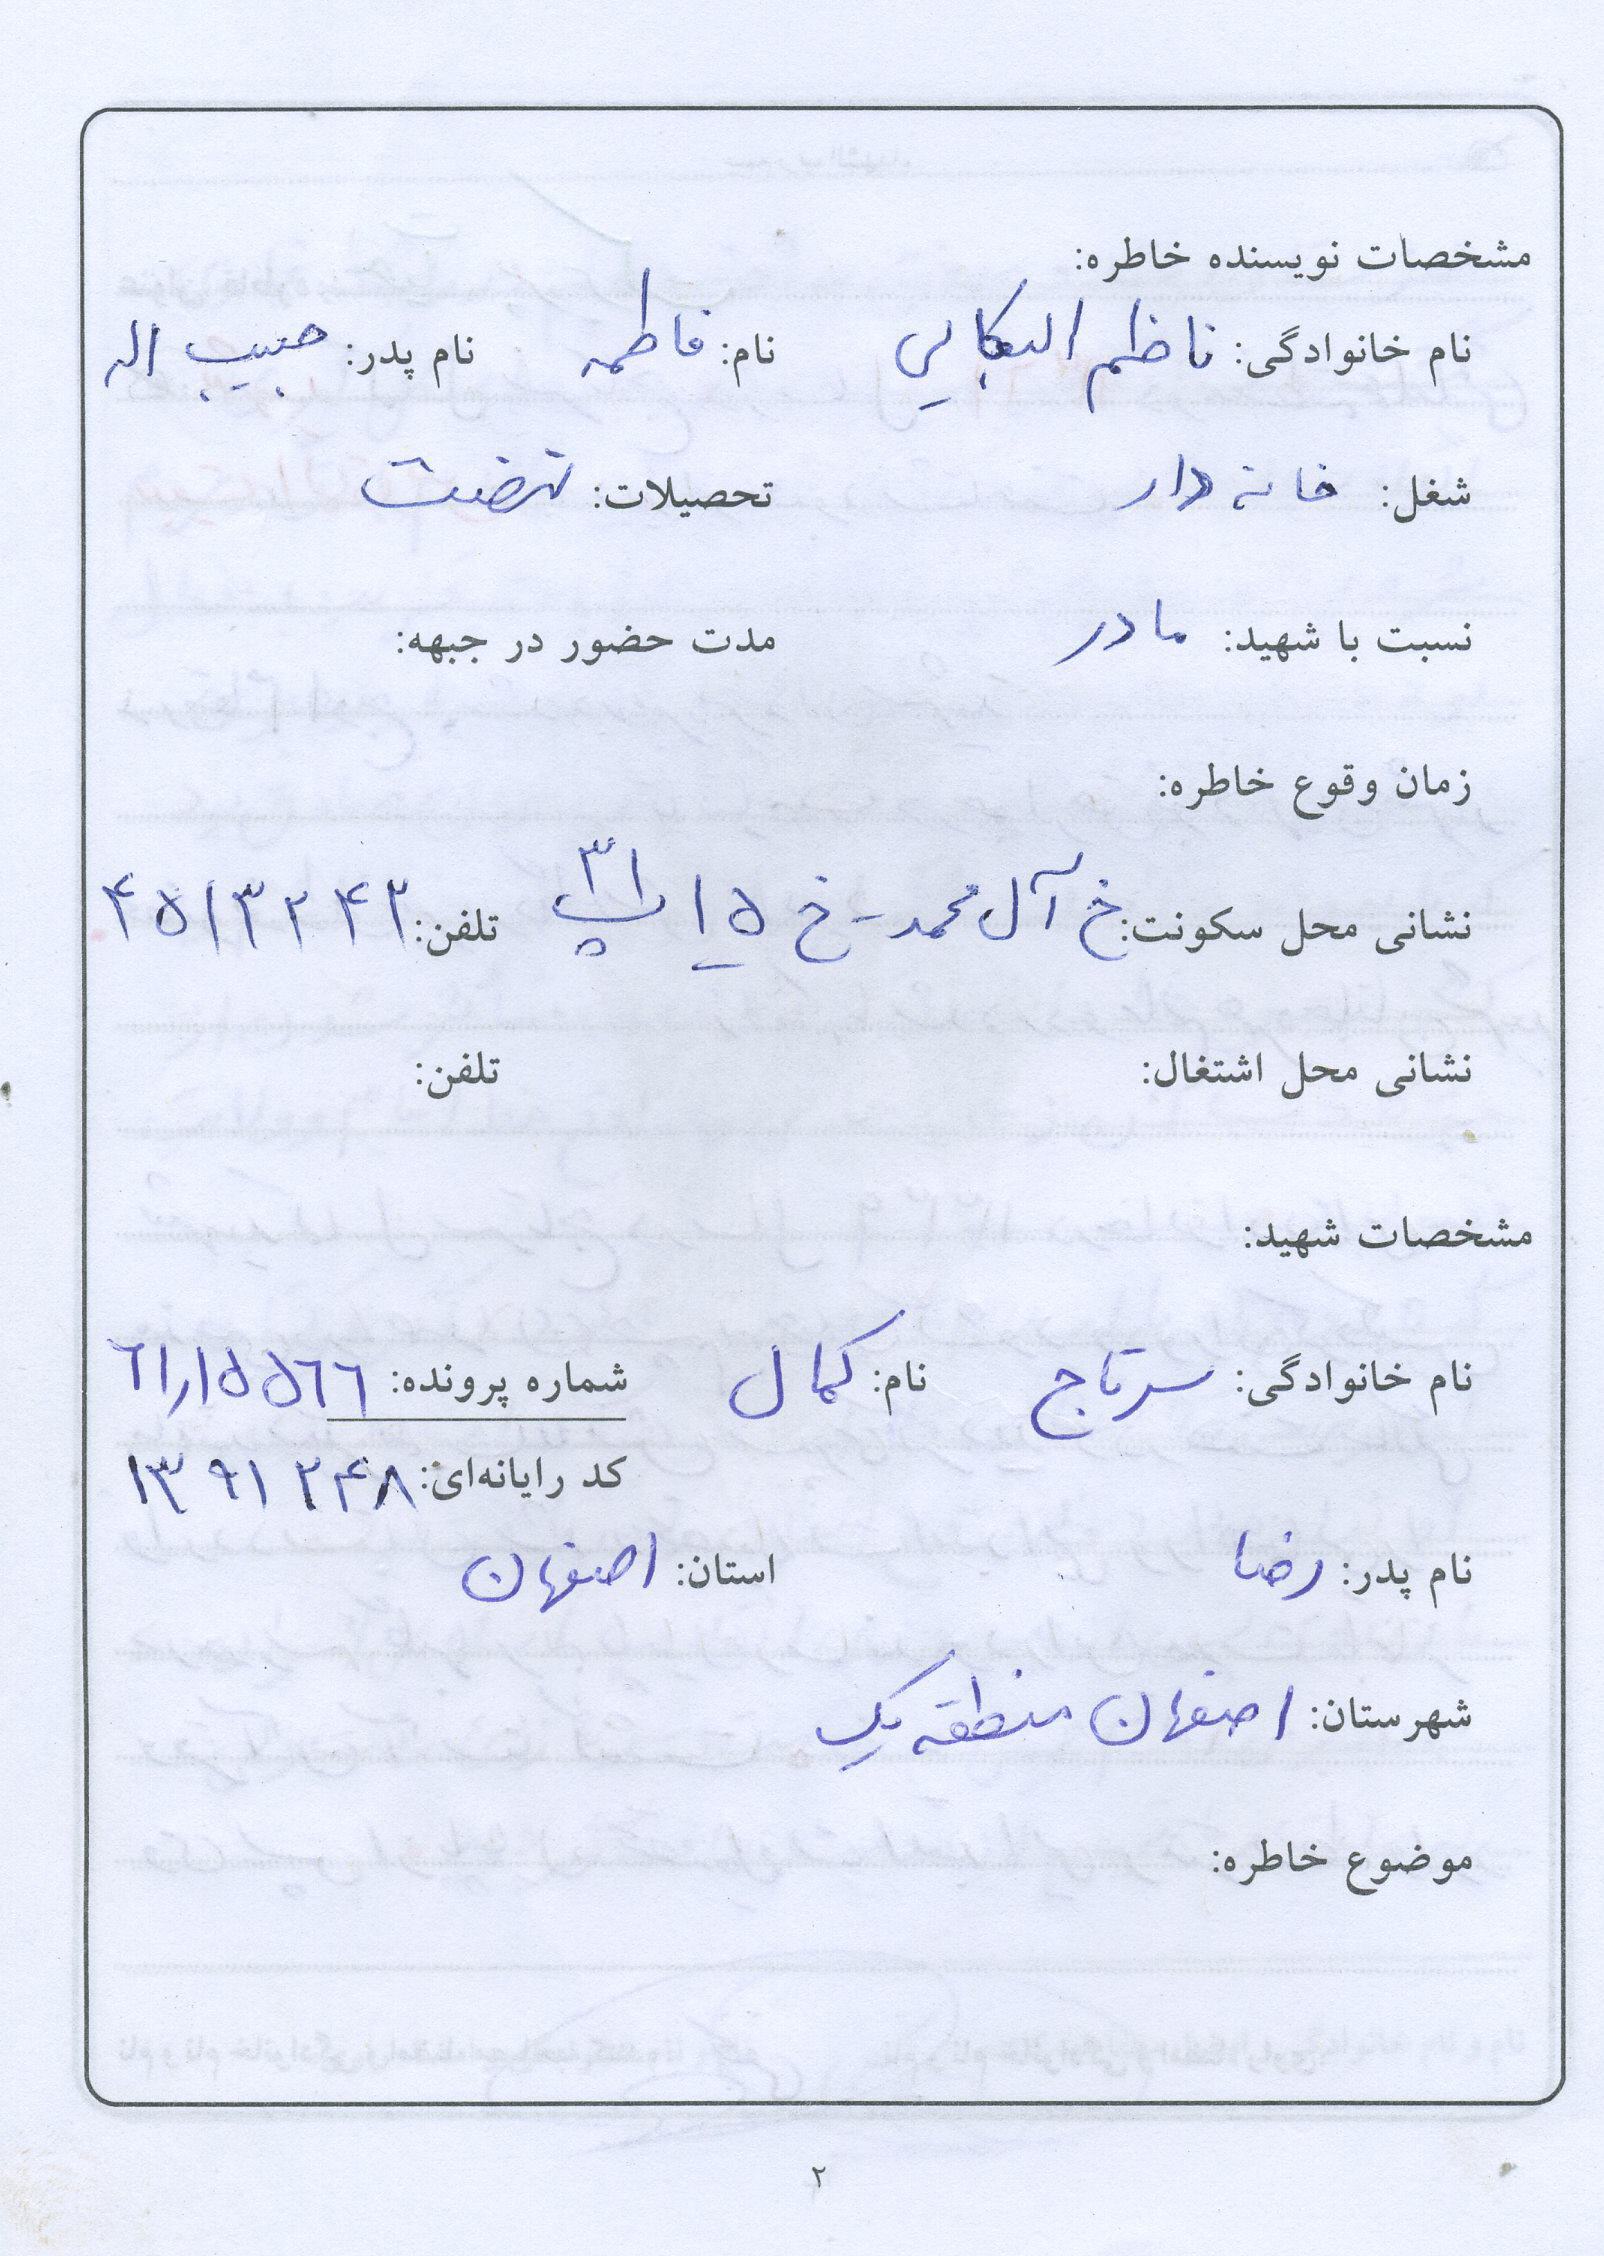 مشخصات نویسنده خاطره:
نام خانوادگی: ناظم البکایی نام: فاطمه نام پدر: حبیب اله
شغل: خانه دار تحصیلات: نهضت
نسبت با شهید: مادر مدت حضور در جبهه:
زمان وقوع خاطره:
نشانی محل سکونت: خ آل محمد - خ ۱۵ پ ۳۱ تلفن: ۴۵۱۳۲۴۲
نشانی محل اشتغال: تلفن:
مشخصات شهید:
نام خانوادگی: سرتاج نام: کمال شماره پرونده: ۶۱ر۱۵۵۶۶
کد رایانه‌ای: ۱۳۹۱۲۴۸
نام پدر: رضا استان: اصفهان
شهرستان: اصفهان منطقه یک
موضوع خاطره:
۲